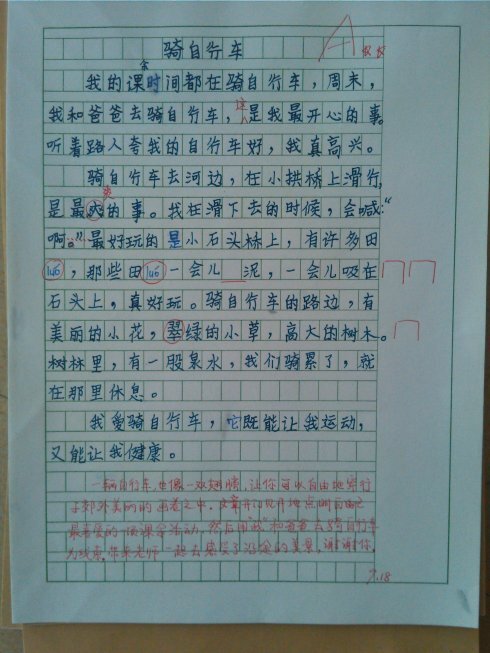 骑自行车
A
余
我的课时间都在骑自行车，周末，
我和爸爸去骑自行车，这是我最开心的事。
听着路人夸我的自行车好，我真高兴。
骑自行车去河边，在小拱桥上滑行，
爽
是最爽的事。我在滑下去的时候，会喊：“
啊。”最好玩的是小石头桥上，有许多田
luó，那些田luó一会儿 泥，一会儿吸在
石头上，真好玩。骑自行车的路边，有
美丽的小花，翠绿的小草，高大的树木。
树林里，有一股泉水，我们骑累了，就
在那里休息。
我爱骑自行车，它既能让我运动，
又能让我健康。
一辆自行车，也像一双翅膀，让你可以自由地穿行
于郊外美丽的画卷之中，文章开门见山地点明自己
最喜爱的一项课余活动，然后用“我”和爸爸去骑自行车
为线索，带着老师一起去感受了沿途的美景，谢谢你。
9.18